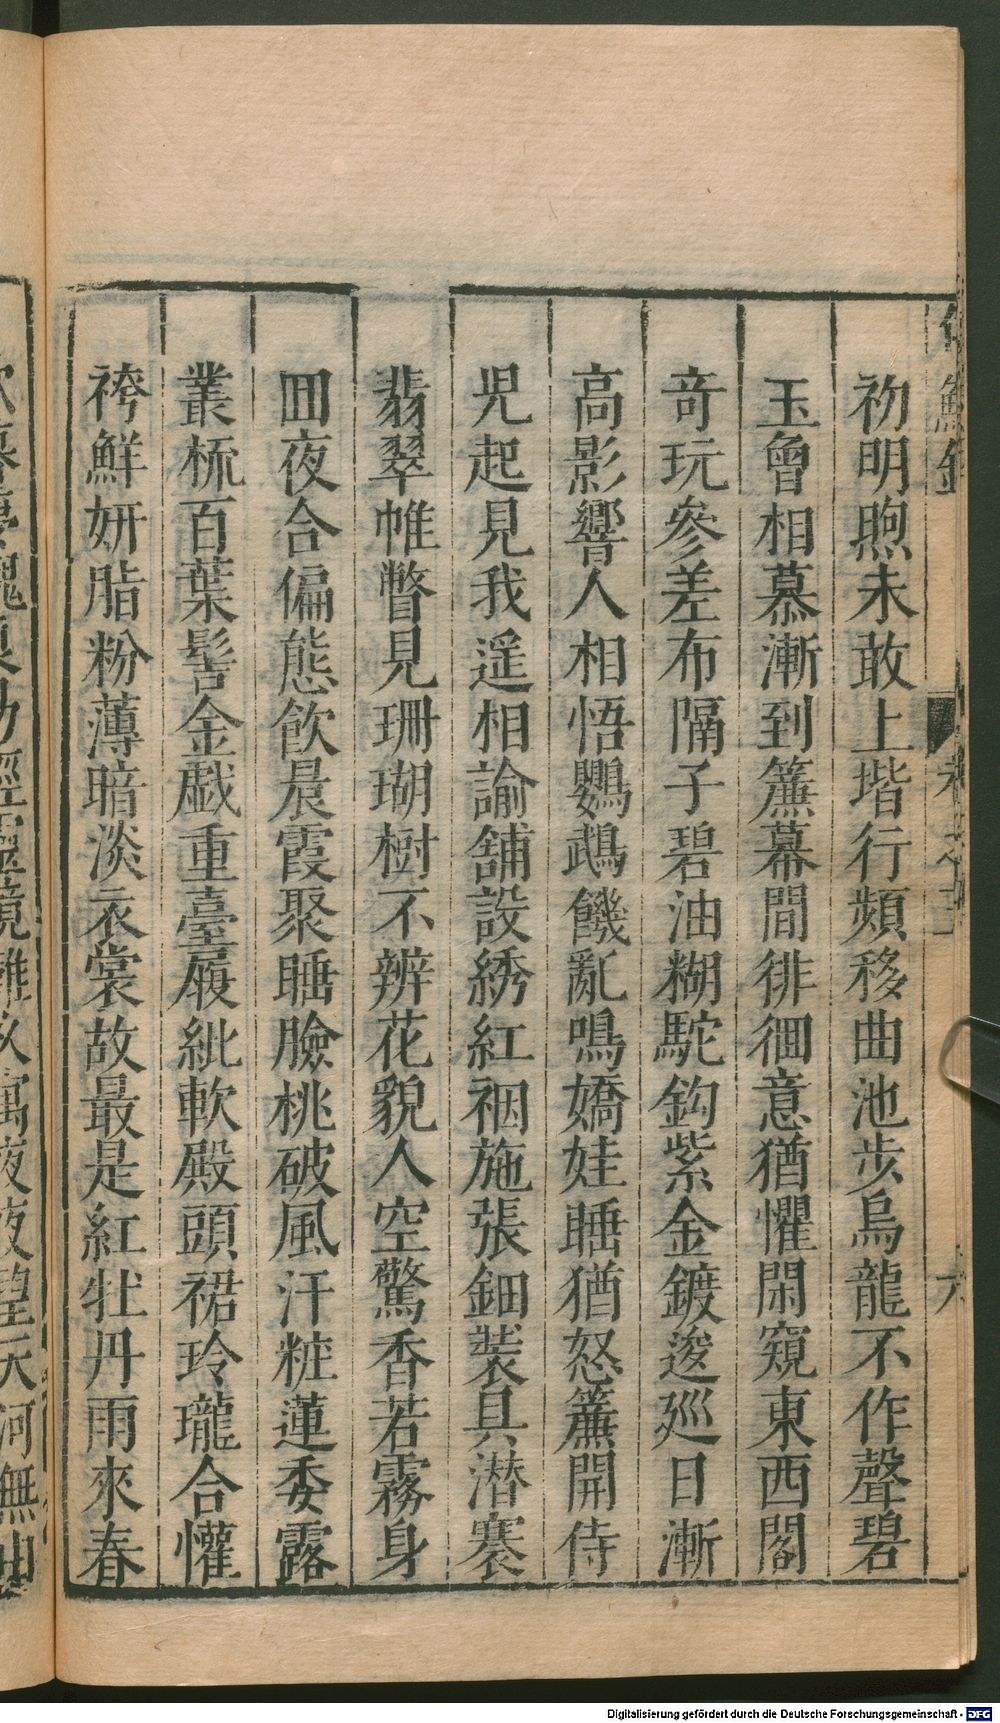 初明煦未敢上堦行頻移曲池步烏龍不作聲碧
玉曾相慕漸到簾幕間徘徊意猶懼閑窺東西閣
竒玩參差布隔子碧油糊駝鈎紫金鍍逡廵日漸
高影響人相悟鸚鵡饑亂鳴嬌娃睡猶怒簾開侍
児起見我遥相諭舖設綉紅裀施張鈿裝具潜褰
翡翠帷瞥見珊瑚樹不辨花貌人空驚香若霧身
囬夜合偏態飲晨霞聚睡臉桃破風汗粧蓮委露
叢梳百葉髻金戲重臺履紕軟殿頭裙玲瓏合懽
袴鮮妍脂粉薄暗淡衣裳故最是紅牡丹雨來春
六
Digitalisierung gefördert durch die Deutsche Forschungsgemeinschaft - DFG